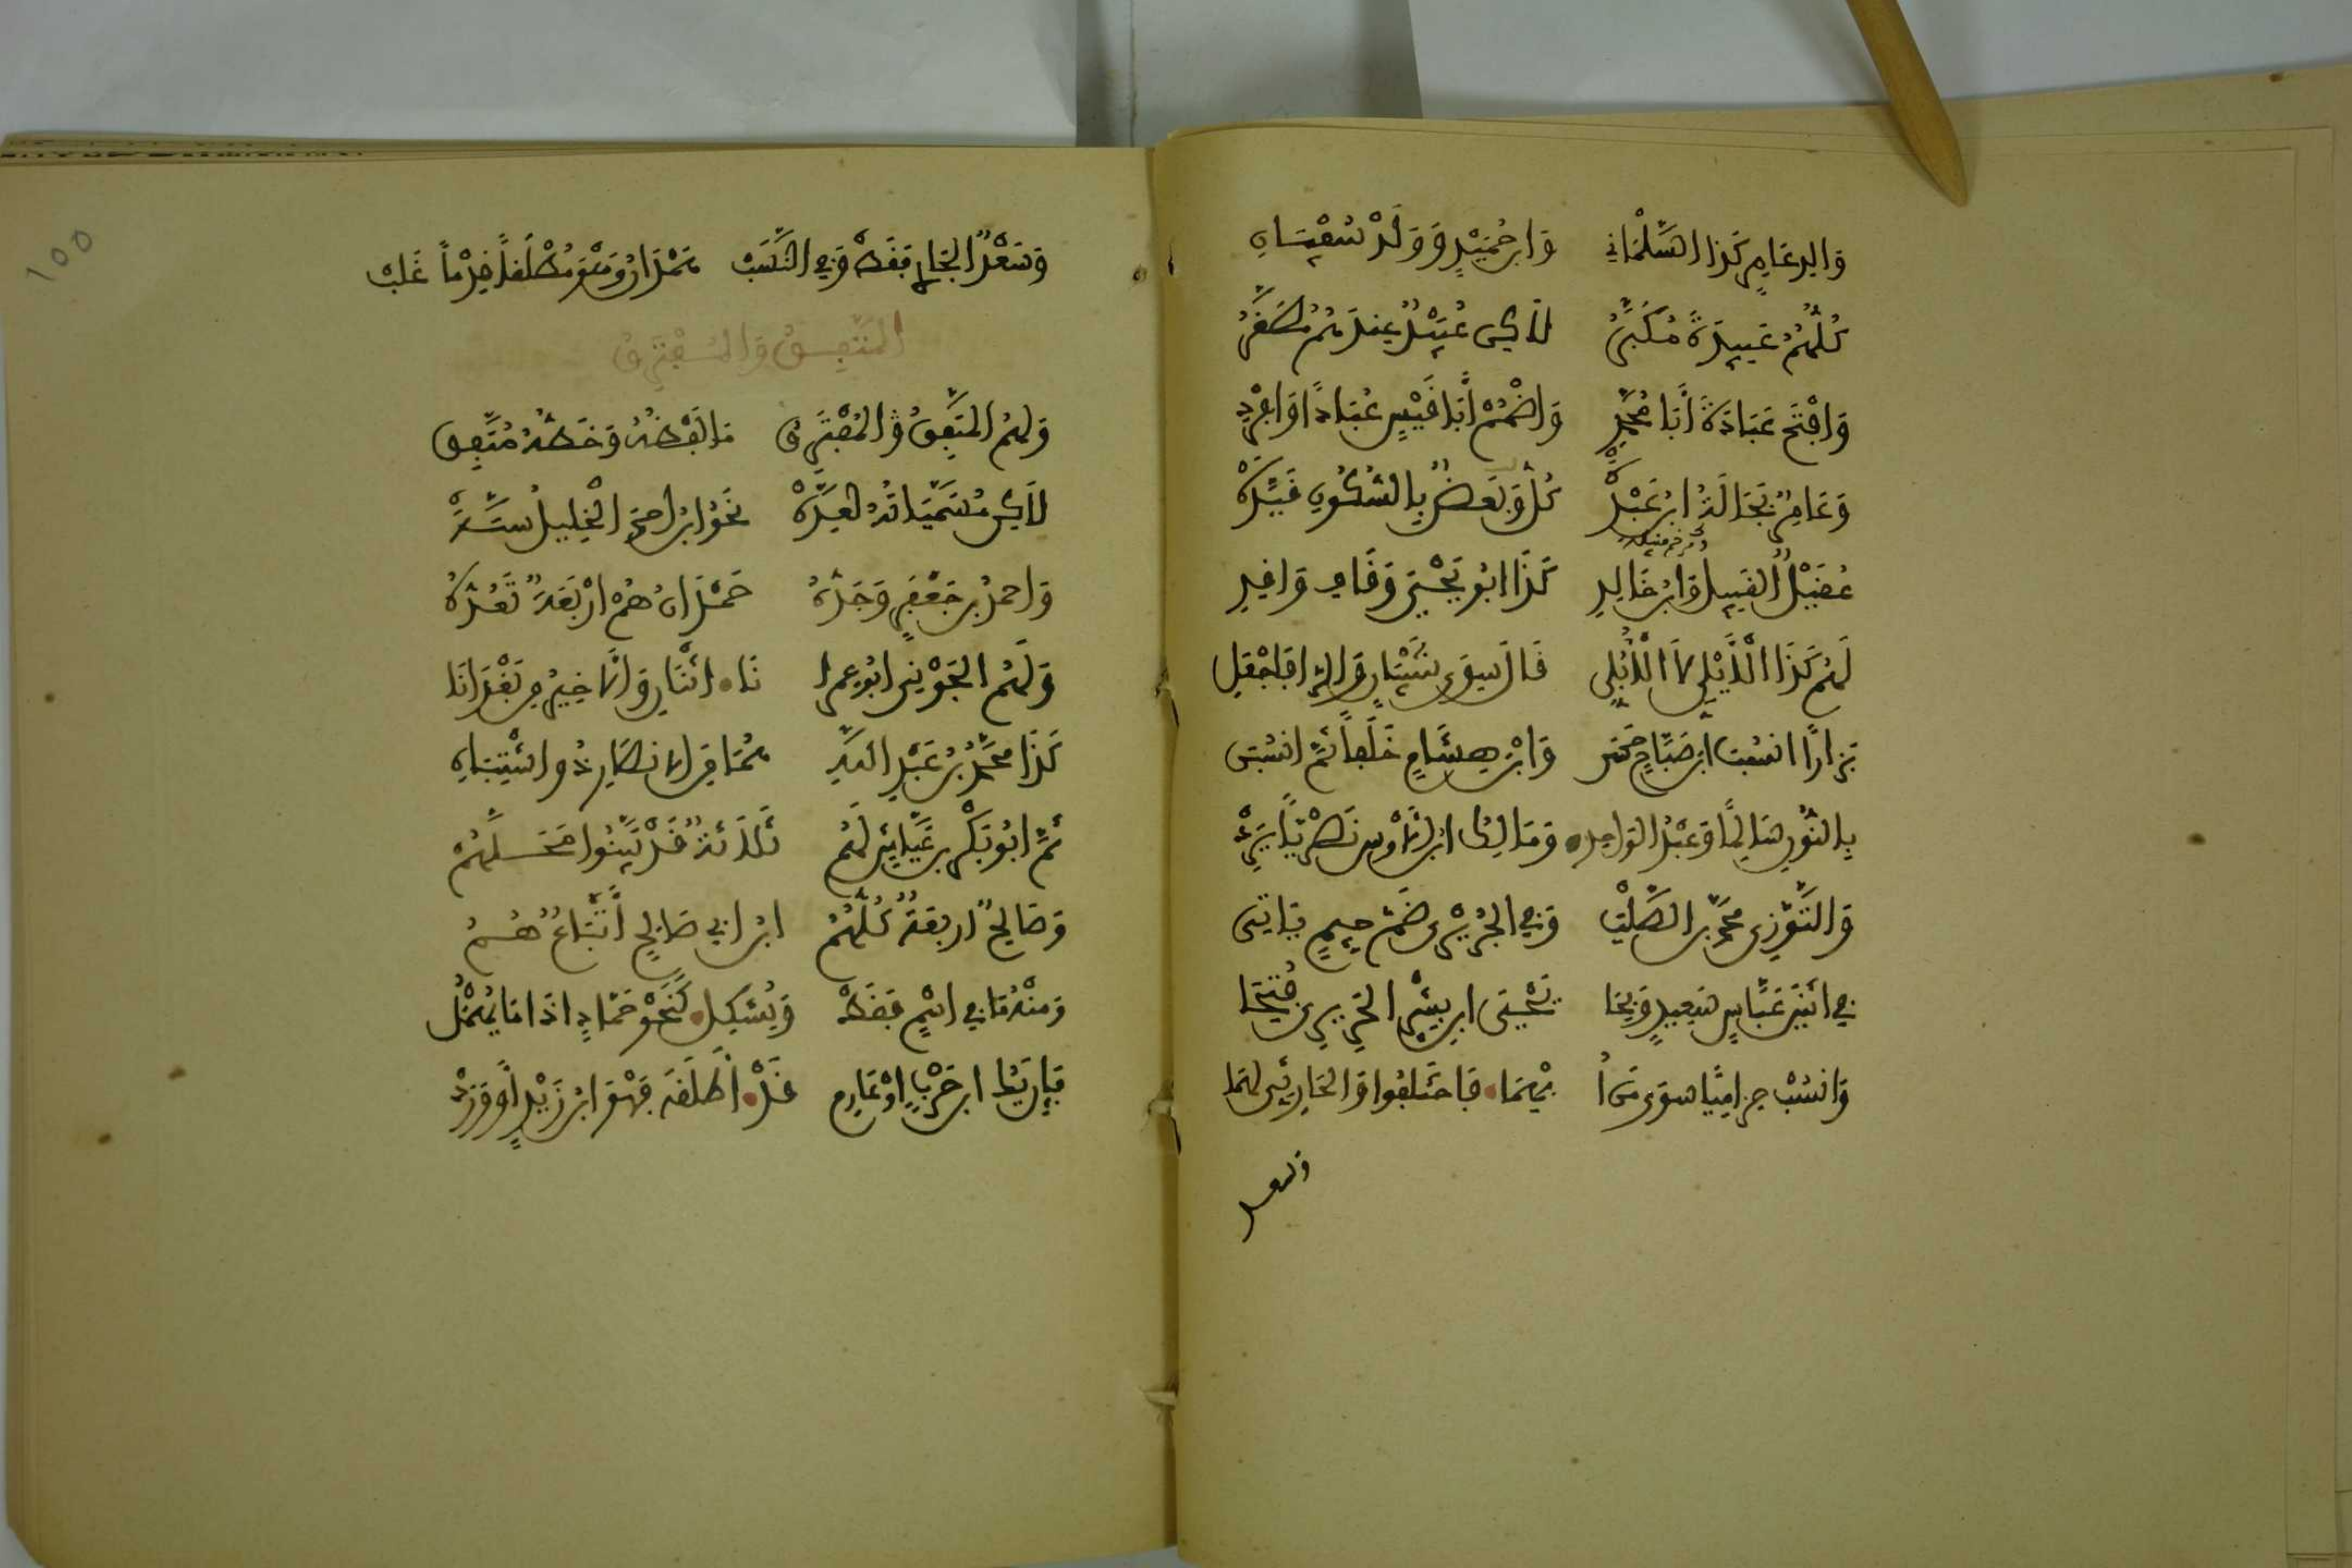 وَالِدُ عَامِرٍ كَذَا السَّلْمَانِي وَابْنُ حُمَيْدٍ وَوَلَدْ سُفْيَانِ
كُلُّهُمُ عَبِيدَةٌ مُكَبَّرُ لَكِنْ عُبَيْدٌ عِنْدَهُمْ مُصَغَّرُ
وَافْتَحْ عَبَادَةَ أَبَا مُحَمَّدِ وَاضْمُمْ أَبَا قَيْسٍ عُبَادًا وَافْرِدِ
وَعَامِرٌ بَجَالَةُ ابْنُ عَبْدَهْ كُلٌّ وَبَعْضٌ بِالسُّكُونِ قَيَّدَهْ
عُقَيْلٌ الْقَبِيلُ وَابْنُ خَالِدِ كَذَا ابُو يَحْيَى وَقَافِ وَاقِدِ
لَهُمْ كَذَا الْأَيْلِيُّ لَا الْأُبُلِّي قَالَ سِوَى شَيْبَانَ وَالرَّا فَاجْعَلِ
بَزَّارًا انْسُبْ ابْنَ صَبَّاحٍ حَسَنْ وَابْنَ هِشَامٍ خَلَفًا ثُمَّ انْسُبَنْ
بِالنُّونِ سَالِمًا وَعَبْدُ الْوَاحِدْ وَمَالِكَ ابْنَ الْأَوْسِ نَصْرِيًّا يَرِدْ
وَالتَّوَّزِي مُحَمَّدُ بْنُ الصَّلْتِ وَفِي الْجُرَيْرِي ضَمُّ جِيمٍ يَاتِي
فِي اثْنَيْنِ عَبَّاسٍ سَعِيدٍ وَبِحَا يَحْيَى ابْنِ بِشْرٍ الْحَرِيرِي فُتِحَا
وَانْسُبْ حِزَامِيًّا سِوَى مَنْ أُبْهِمَا فَاخْتَلَفُوا وَالْحَارِثِيُّ لَهُمَا
وسعد
وَسَعْدٌ الْجَارِي فَقَطْ وَفِي النَّسَبْ هَمْدَانُ وَهْوَ مُطْلَقًا قِدْمًا غَلَبْ
الْمُتَّفِقُ وَالْمُفْتَرِقُ
وَلَهُمُ الْمُتَّفِقُ وَالْمُفْتَرِقْ مَا لَفْظُهُ وَخَطُّهُ مُتَّفِقْ
لَكِنْ مُسَمَّيَاتُهُ لِعِدَّهْ نَحْوُ ابْنِ احْمَدَ الْخَلِيلِ سِتَّهْ
وَاحْمَدُ بْنُ جَعْفَرٍ وَجَدُّهُ حَمْدَانُ هُمْ ارْبَعَةٌ تَعُدُّهُ
وَلَهُمُ الْجَوْنِي ابُو عِمْرَانَا اثْنَانِ وَالْآخِرُ مِنْ بَغْدَانَا
كَذَا مُحَمَّدُ بْنُ عَبْدِ اللهِ هُمَا مِنَ الْانْصَارِ ذُو اشْتِبَاهِ
ثُمَّ ابُو بَكْرِ بْنُ عَيَّاشٍ لَهُمْ ثَلَاثَةٌ قَدْ بَيَّنُوا مَحَلَّهُمْ
وَصَالِحٌ ارْبَعَةٌ كُلُّهُمُ ابْنُ ابِي صَالِحٍ أَتْبَاعٌ هُمُ
وَمِنْهُ مَا فِي اسْمٍ فَقَطْ وَيُشْكِلُ كَنَحْوِ حَمَّادٍ اذَا مَا يُهْمَلُ
فَإِنْ يَكُ ابْنُ حَرْبٍ اوْ عَارِمُ قَدْ أَطْلَقَهُ فَهْوَ ابْنُ زَيْدٍ أَوْ وَرَدْ
١٥٥